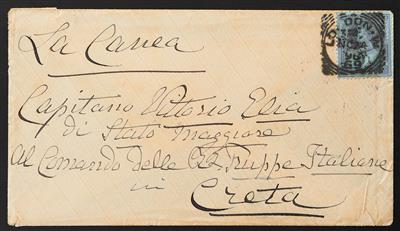 La Canea
LONDON
Capitano Vittorio Elia
di Stato Maggiore
al Comando delle Truppe Italiane
in
Creta